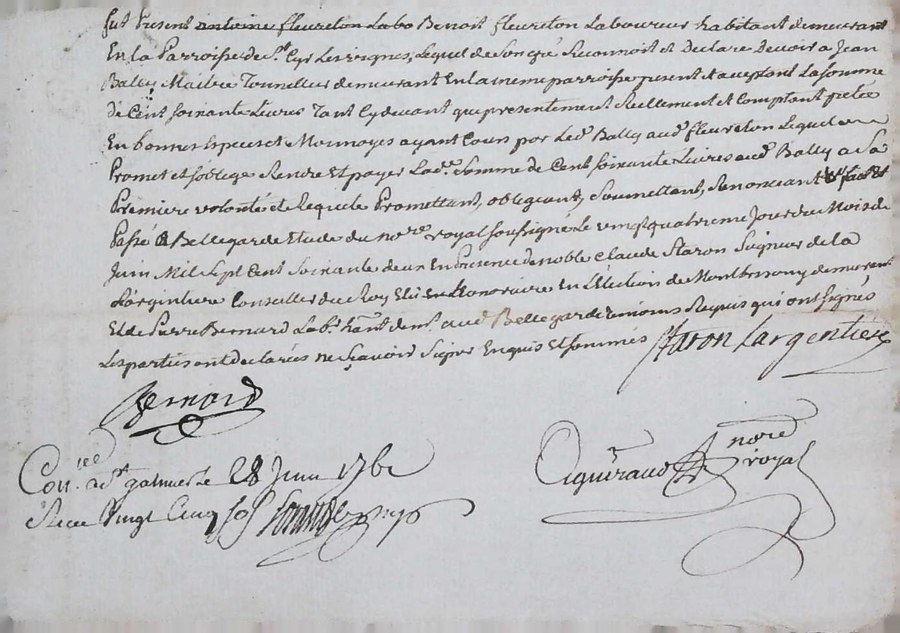 fut Present antoine fleureton Labo Benoit fleureton Laboureur habitant demeurant
En la Parroisse de St Cyr Les vignes, Lequel de Son gré Reconnoit et Declare Devoir a Jean
Bally Maitre Tonnellier demeurant En la meme parroisse present et aceptant La somme
de Cent soixante Livres Tant Cy devant que presentement Reellement et Comptant pretée
En bonnes Especes et Monnoyes ayant Cours par Led. Bally aud. fleureton Lequel
Promet et soblege Rendre Et payer Lad. Somme de Cent soixante Livres aud. Bally a Sa
Premiere volonté et Requete Promettant, obligeant, Soumettant, Renonceant
Passé a Bellegarde Etude du nore royal soussigné Le vingt quatrieme Jour du Mois de
Juin Mil Sept Cent Soixante deux En Presence de noble Claude Staron Seigneur de la
L'argintiere Conseiller du Roy Elu Honoraire En L'Election de Montbrison y demeurant
Et de Pierre Bernard Labr. hant demt. aud. Bellegarde Temoins Requis qui ont signés
Les parties ont declarées ne Sçavoir Signer Enquis Et sommés Staron Largentiere
Bernard
Conllee a St galmier Le 28 Juin 1762 Aguiraud nore royal
Receu Vingt Cinq sols